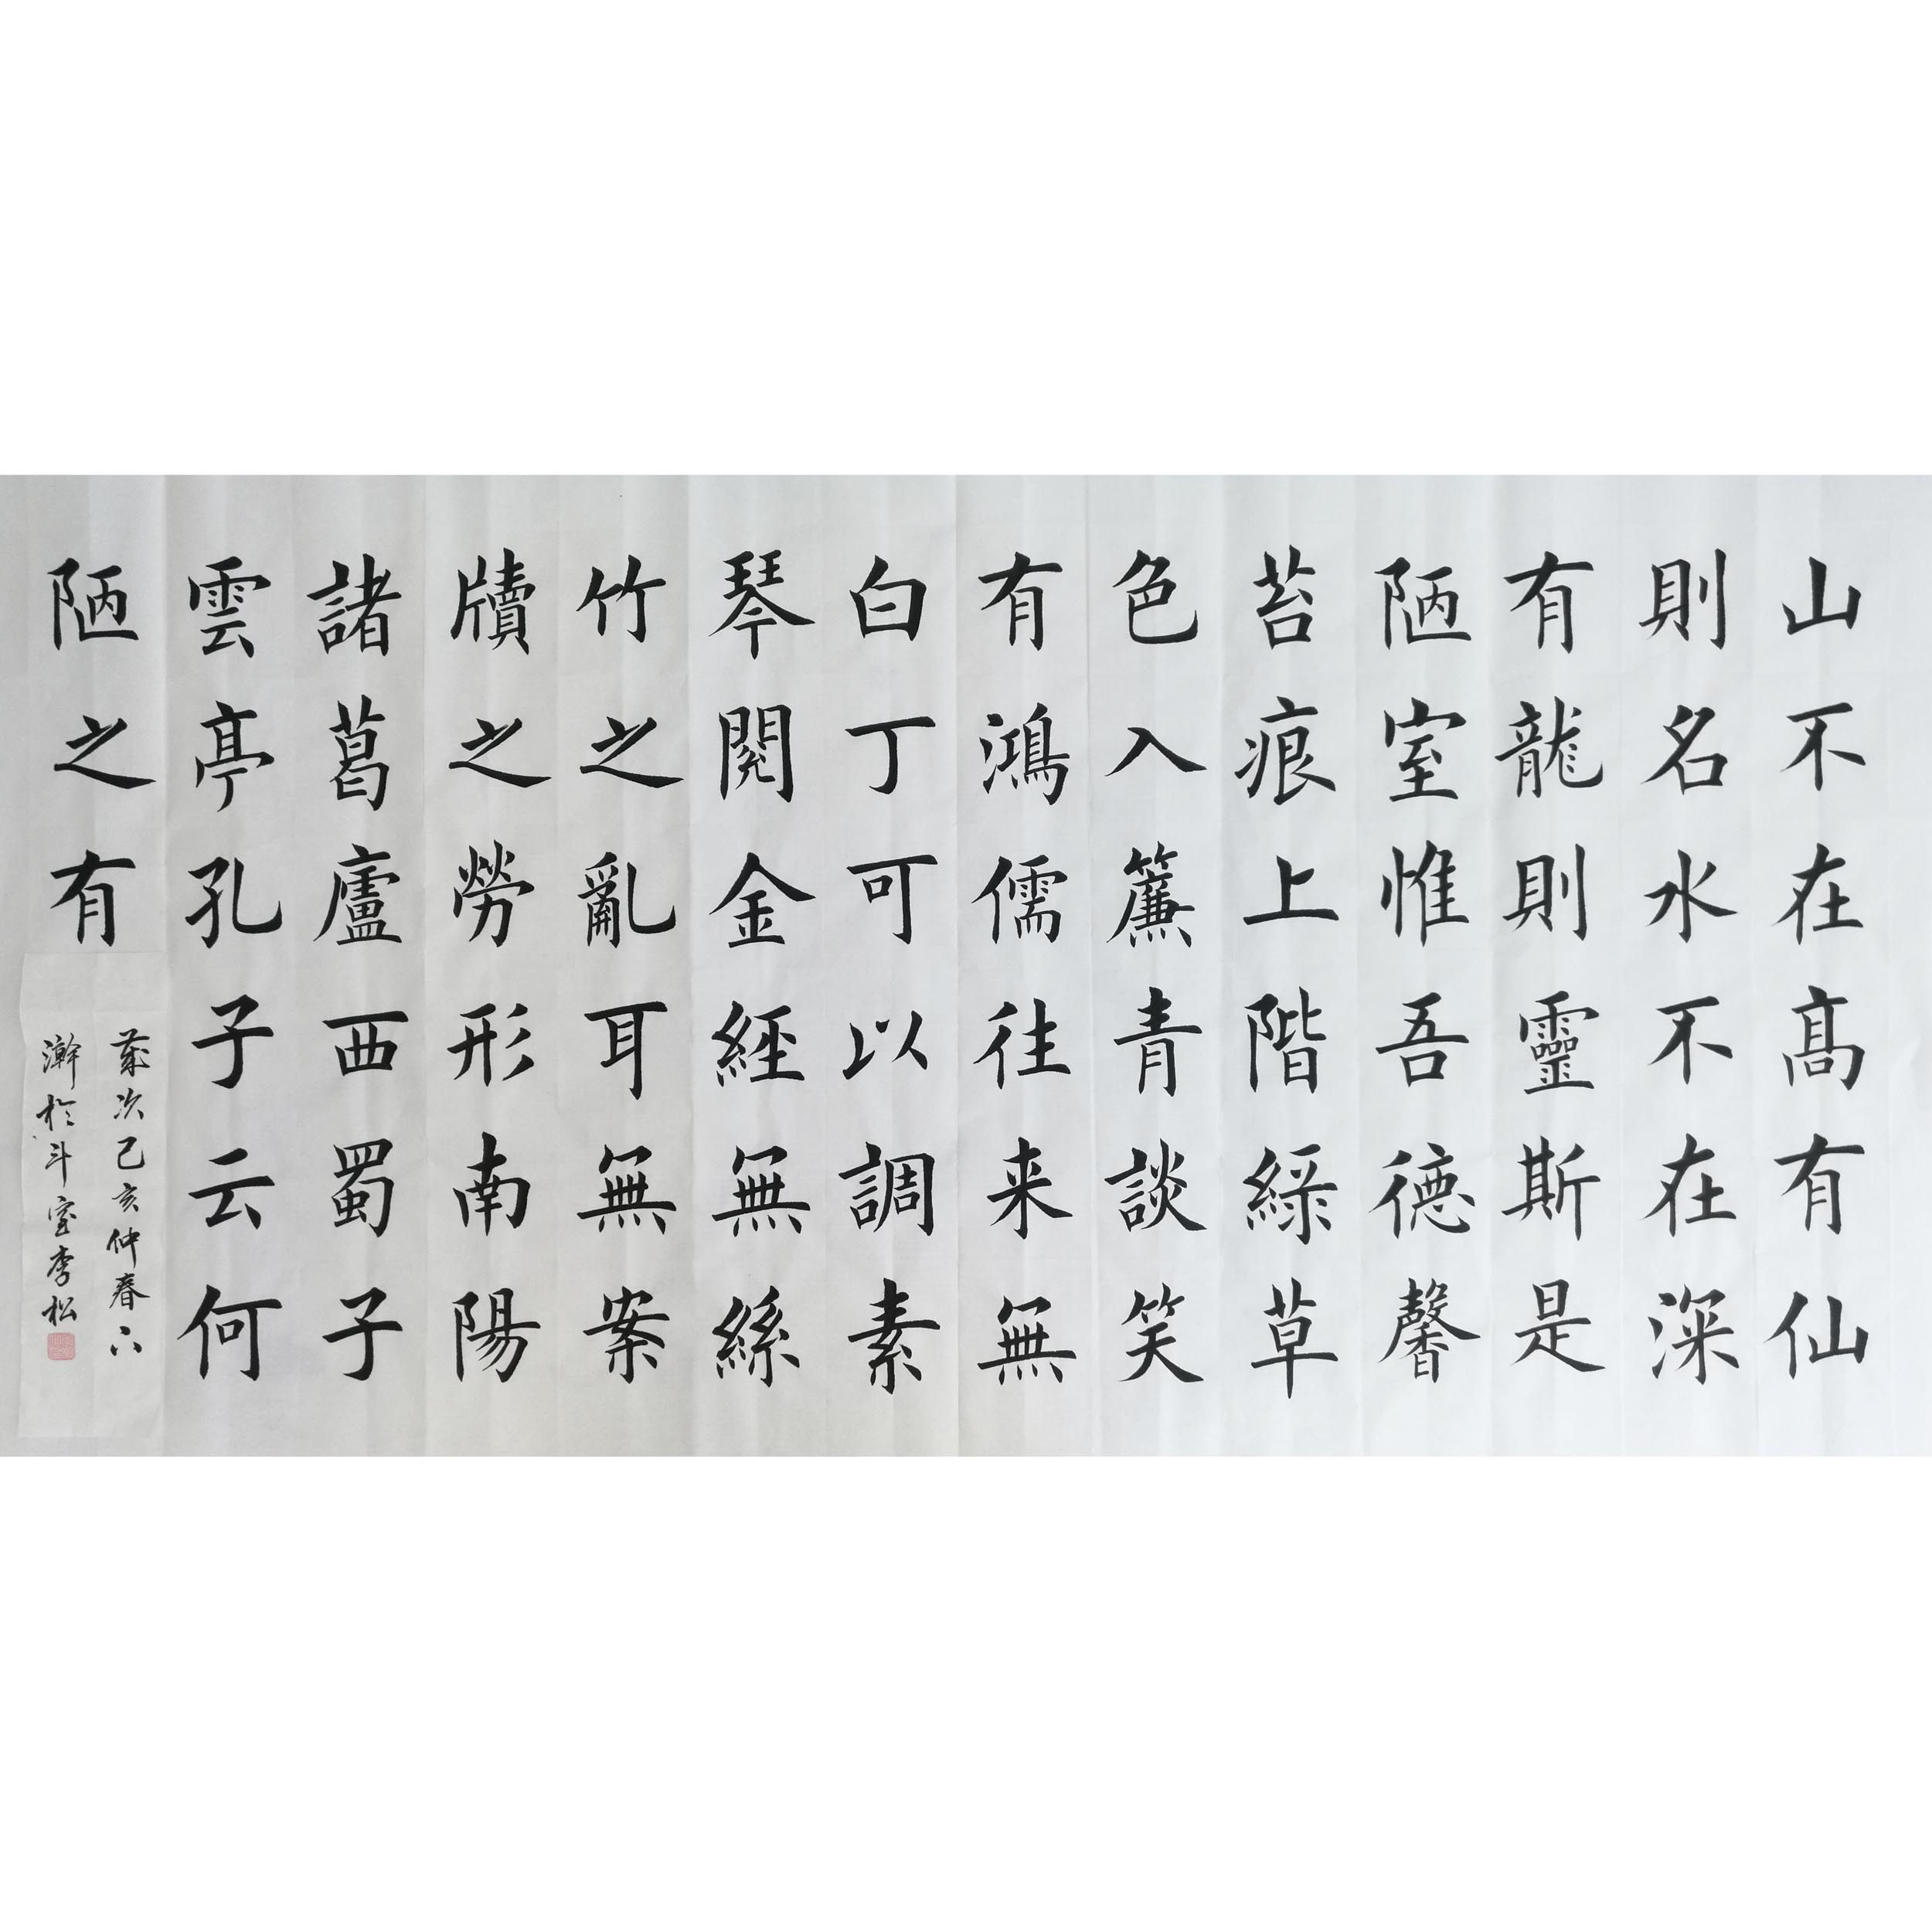 山不在高有仙
則名水不在深
有龍則靈斯是
陋室惟吾德馨
苔痕上階綠草
色入簾青談笑
有鴻儒往来無
白丁可以調素
琴閱金經無絲
竹之亂耳無案
牘之勞形南陽
諸葛廬西蜀子
雲亭孔子云何
陋之有
歲次己亥仲春下
澣於斗室李松